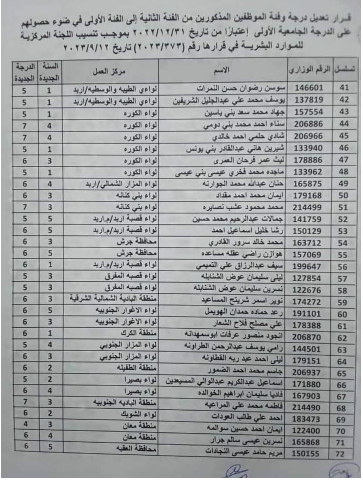 قرار تعديل درجة وفئة الموظفين المذكورين من الفئة الثانية إلى الفئة الأولى في ضوء حصولهم
على الدرجة الجامعية الأولى إعتباراً من تاريخ ٢٠٢٢/١٢/٣١ بموجب تنسيب اللجنة المركزية
للموارد البشرية في قرارها رقم (٢٠٢٣/٣٧٣) تاريخ ٢٠٢٣/٩/١٢
تسلسل الرقم الوزاري الاسم مركز العمل السنة الجديدة الدرجة الجديدة
41 146601 سوسن رضوان حسن النمرات لواءي الطيبه والوسطيه/اربد 1 5
42 137819 يوسف محمد علي عبدالجليل الشريفين لواءي الطيبه والوسطيه/اربد 1 5
43 157554 جهاد محمد سعد بني ياسين لواء الكوره 1 5
44 206886 سناء احمد محمد بني دومي لواء الكوره 4 7
45 206966 شادي حلمي احمد خالدي لواء الكوره 4 6
46 133940 شيرين هاني عبدالقادر بني يونس لواء الكوره 1 5
47 178886 ليث عمر فرحان العمري لواء الكوره 3 6
48 133962 ماجده محمد فخري عيسى بني عيسى لواء الكوره 1 5
49 165875 حنان عبدالله محمد الجوارنه لواء المزار الشمالي/اربد 4 6
50 179168 ايمان محمد احمد مقداد لواء بني كنانه 3 6
51 214499 محمد محمود عقب نصايره لواء بني كنانه
52 141759 جمالات عبدالرحيم محمد حسين لواء قصبة اربد/م.اربد 5
53 150129 رشا خليل اسماعيل احمد لواء قصبة اربد/م.اربد
54 163712 محمد خالد سرور القادري محافظة جرش 6
55 157069 هوازن راضي عقله مساعده محافظة جرش
56 199647 سيف عبدالرزاق علي التميمي لواء قصبة اربد/م.اربد
57 127854 نسرين سليمان عوض الشتايله لواء قصبة المفرق
58 122676 نسرين سليمان عوض الشتايله لواء قصبة المفرق
59 174272 نوير اسمر شريتح المساعيد منطقة البادية الشمالية الشرقية 3 6
60 191101 رعد حماده حمدان الهويمل لواء الاغوار الجنوبيه
61 178388 علي مصلح فلاح الشعار لواء الاغوار الجنوبيه 3 6
62 206870 انجود منصور عرفات ابوسمهدانه منطقة الكرك
63 144501 رامي يوسف عبدالرحمن الطراونه لواء المزار الجنوبي
64 179151 ليلى احمد عبد ربه القطاونه لواء المزار الجنوبي 3 6
65 206937 جاسم محمد احمد الضمور منطقة الطفيله
66 171880 اسماعيل عبدالكريم عبدالوالي المسيعدين لواء بصيرا
67 167903 فاديا سليمان ابراهيم الخوالده لواء بصيرا 4 6
68 214490 فاطمه محمد علي المراعيه منطقة البادية الجنوبيه
69 183473 احمد علي طالب العودات لواء الشوبك 2 6
70 122400 ايمان احمد حسين سوالمه منطقة معان 3 4
71 165868 نسرين عيسى سالم جرار منطقة معان 4 6
72 150155 مريم حامد عيسى النجادات محافظة العقبه